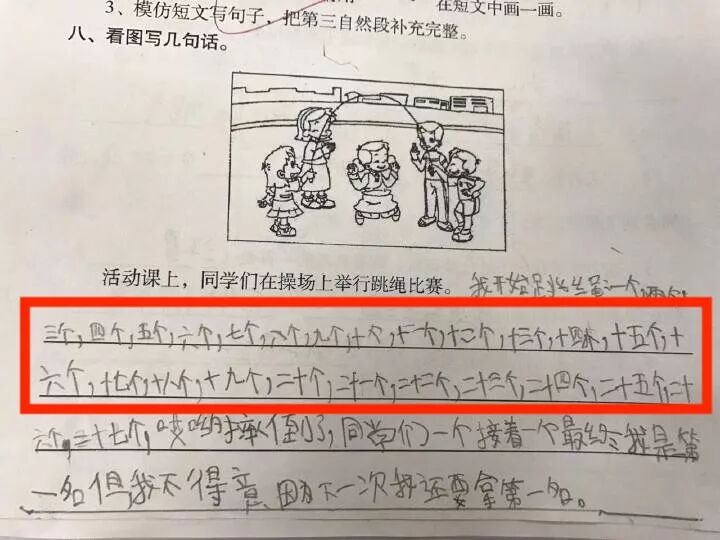 3、模仿短文写句子，把第三自然段补充完整。 在短文中画一画。
八、看图写几句话。
活动课上，同学们在操场上举行跳绳比赛。我开始跳绳一个，两个，
三个，四个，五个，六个，七个，八个，九个，十个，十一个，十二个，十三个，十四个，十五个，十
六个，十七个，十八个，十九个，二十个，二十一个，二十二个，二十三个，二十四个，二十五个，二十
六个，二十七个，哎哟摔倒了，同学们一个接着一个最终我是第
一名但我不得意，因为下一次我还要拿第一名。